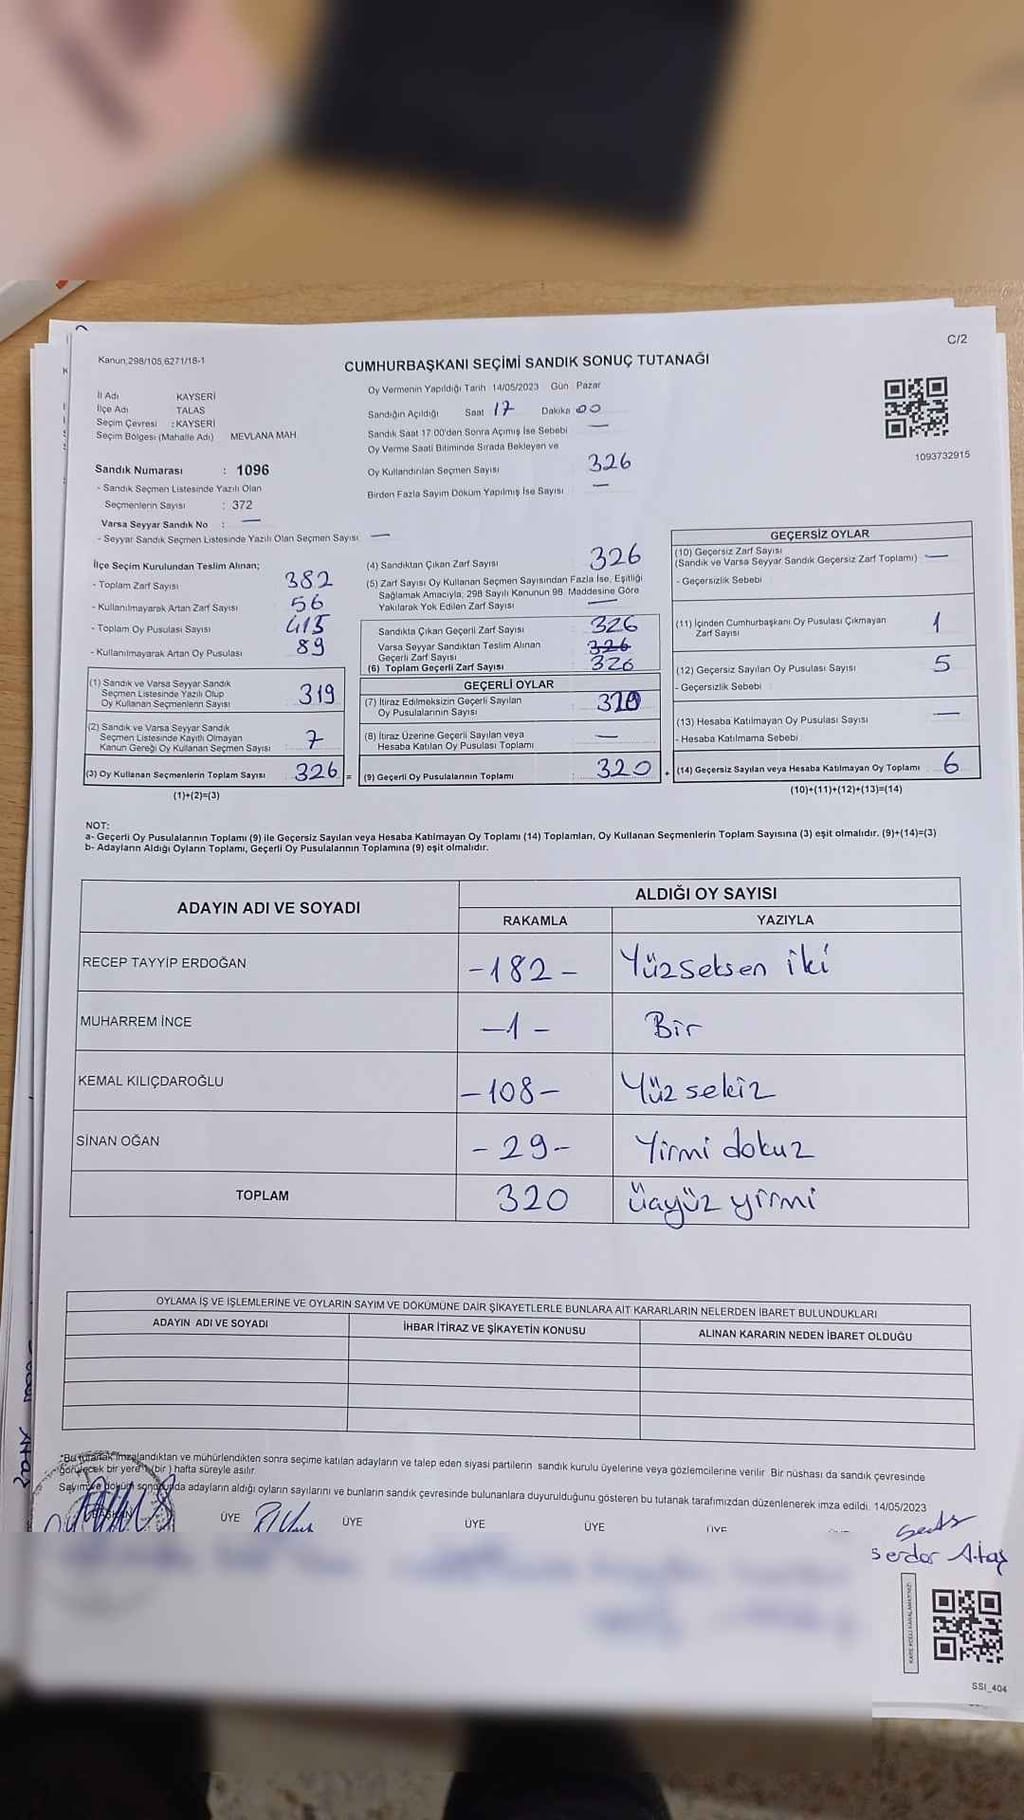 C/2
Kanun,298/105,6271/16-1
CUMHURBAŞKANI SEÇİMİ SANDIK SONUÇ TUTANAĞI
İl Adı KAYSERİ
İlçe Adı TALAS
Seçim Çevresi : KAYSERİ
Seçim Bölgesi (Mahalle Adı) MEVLANA MAH.
Sandık Numarası : 1096
- Sandık Seçmen Listesinde Yazılı Olan
Seçmenlerin Sayısı : 372
Varsa Seyyar Sandık No : —
- Seyyar Sandık Seçmen Listesinde Yazılı Olan Seçmen Sayısı —
Oy Vermenin Yapıldığı Tarih 14/05/2023 Gün Pazar
Sandığın Açıldığı Saat 17 Dakika 00
Sandık Saat 17.00'den Sonra Açımış İse Sebebi —
Oy Verme Saati Bitiminde Sırada Bekleyen ve
Oy Kullandırılan Seçmen Sayısı 326
Birden Fazla Sayım Döküm Yapılmış İse Sayısı —
1093732915
İlçe Seçim Kurulundan Teslim Alınan;
- Toplam Zarf Sayısı 382
- Kullanılmayarak Artan Zarf Sayısı 56
- Toplam Oy Pusulası Sayısı 415
- Kullanılmayarak Artan Oy Pusulası 89
(1) Sandık ve Varsa Seyyar Sandık
Seçmen Listesinde Yazılı Olup
Oy Kullanan Seçmenlerin Sayısı 319
(2) Sandık ve Varsa Seyyar Sandık
Seçmen Listesinde Kayıtlı Olmayan
Kanun Gereği Oy Kullanan Seçmen Sayısı 7
(3) Oy Kullanan Seçmenlerin Toplam Sayısı 326 =
(1)+(2)=(3)
(4) Sandıktan Çıkan Zarf Sayısı 326
(5) Zarf Sayısı Oy Kullanan Seçmen Sayısından Fazla İse, Eşitliği
Sağlamak Amacıyla, 298 Sayılı Kanunun 98. Maddesine Göre
Yakılarak Yok Edilen Zarf Sayısı —
Sandıkta Çıkan Geçerli Zarf Sayısı 326
Varsa Seyyar Sandıktan Teslim Alınan
Geçerli Zarf Sayısı 326
(6) Toplam Geçerli Zarf Sayısı 326
GEÇERLİ OYLAR
(7) İtiraz Edilmeksizin Geçerli Sayılan
Oy Pusulalarının Sayısı
(8) İtiraz Üzerine Geçerli Sayılan veya
Hesaba Katılan Oy Pusulası Toplamı —
(9) Geçerli Oy Pusulalarının Toplamı : 320 +
GEÇERSİZ OYLAR
(10) Geçersiz Zarf Sayısı
(Sandık ve Varsa Seyyar Sandık Geçersiz Zarf Toplamı) —
- Geçersizlik Sebebi
(11) İçinden Cumhurbaşkanı Oy Pusulası Çıkmayan
Zarf Sayısı 1
(12) Geçersiz Sayılan Oy Pusulası Sayısı 5
- Geçersizlik Sebebi
(13) Hesaba Katılmayan Oy Pusulası Sayısı —
- Hesaba Katılmama Sebebi
(14) Geçersiz Sayılan veya Hesaba Katılmayan Oy Toplamı 6
(10)+(11)+(12)+(13)=(14)
NOT:
a- Geçerli Oy Pusulalarının Toplamı (9) ile Geçersiz Sayılan veya Hesaba Katılmayan Oy Toplamı (14) Toplamları, Oy Kullanan Seçmenlerin Toplam Sayısına (3) eşit olmalıdır. (9)+(14)=(3)
b- Adayların Aldığı Oyların Toplamı, Geçerli Oy Pusulalarının Toplamına (9) eşit olmalıdır.
ADAYIN ADI VE SOYADI ALDIĞI OY SAYISI
RAKAMLA YAZIYLA
RECEP TAYYİP ERDOĞAN -182- Yüzseksen iki
MUHARREM İNCE -1- Bir
KEMAL KILIÇDAROĞLU -108- Yüz sekiz
SİNAN OĞAN -29- Yirmi dokuz
TOPLAM 320 Üçyüz yirmi
OYLAMA İŞ VE İŞLEMLERİNE VE OYLARIN SAYIM VE DÖKÜMÜNE DAİR ŞİKAYETLERLE BUNLARA AİT KARARLARIN NELERDEN İBARET BULUNDUKLARI
ADAYIN ADI VE SOYADI İHBAR İTİRAZ VE ŞİKAYETİN KONUSU ALINAN KARARIN NEDEN İBARET OLDUĞU
*Bu tutanak imzalandıktan ve mühürlendikten sonra seçime katılan adayların ve talep eden siyasi partilerin sandık kurulu üyelerine veya gözlemcilerine verilir. Bir nüshası da sandık çevresinde
görülecek bir yere 1 (bir) hafta süreyle asılır.
Sayım ve döküm sonunda adayların aldığı oyların sayılarını ve bunların sandık çevresinde bulunanlara duyurulduğunu gösteren bu tutanak tarafımızdan düzenlenerek imza edildi. 14/05/2023
BAŞKAN ÜYE ÜYE ÜYE ÜYE ÜYE
Serdar Ataş
SSI_404